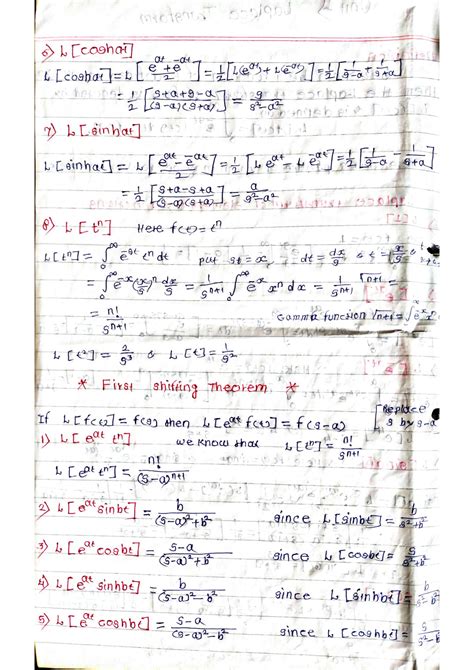 6) L[coshat]
L[coshat] = L[(e^at + e^-at)/2] = 1/2[L(e^at) + L(e^-at)] = 1/2[1/(s-a) + 1/(s+a)]
= 1/2[(s+a+s-a)/((s-a)(s+a))] = s/(s²-a²)
7) L[sinhat]
L[sinhat] = L[(e^at - e^-at)/2] = 1/2[L e^at - L e^-at] = 1/2[1/(s-a) - 1/(s+a)]
= 1/2[(s+a-s+a)/((s-a)(s+a))] = a/(s²-a²)
8) L[t^n] Here f(t) = t^n
L[t^n] = ∫₀^∞ e^-st t^n dt put st = x, dt = dx/s & t = x/s
= ∫₀^∞ e^-x (x/s)^n dx/s = 1/s^(n+1) ∫₀^∞ e^-x x^n dx = 1/s^(n+1) Γn+1
= n!/s^(n+1) Gamma function Γn+1 = ∫₀^∞ e^-x x^n
L[t²] = 2/s³ & L[t] = 1/s²
* First shifting Theorem *
If L[f(t)] = f(s) then L[e^at f(t)] = f(s-a) [Replace s by s-a
1) L[e^at t^n] we know that L[t^n] = n!/s^(n+1)
L[e^at t^n] = n!/(s-a)^(n+1)
2) L[e^at sinbt] = b/((s-a)²+b²) since L[sinbt] = b/(s²+b²)
3) L[e^at cosbt] = (s-a)/((s-a)²+b²) since L[cosbt] = s/(s²+b²)
4) L[e^at sinhbt] = b/((s-a)²-b²) since L[sinhbt] = b/(s²-b²)
5) L[e^at coshbt] = (s-a)/((s-a)²-b²) since L[coshbt] = s/(s²-b²)